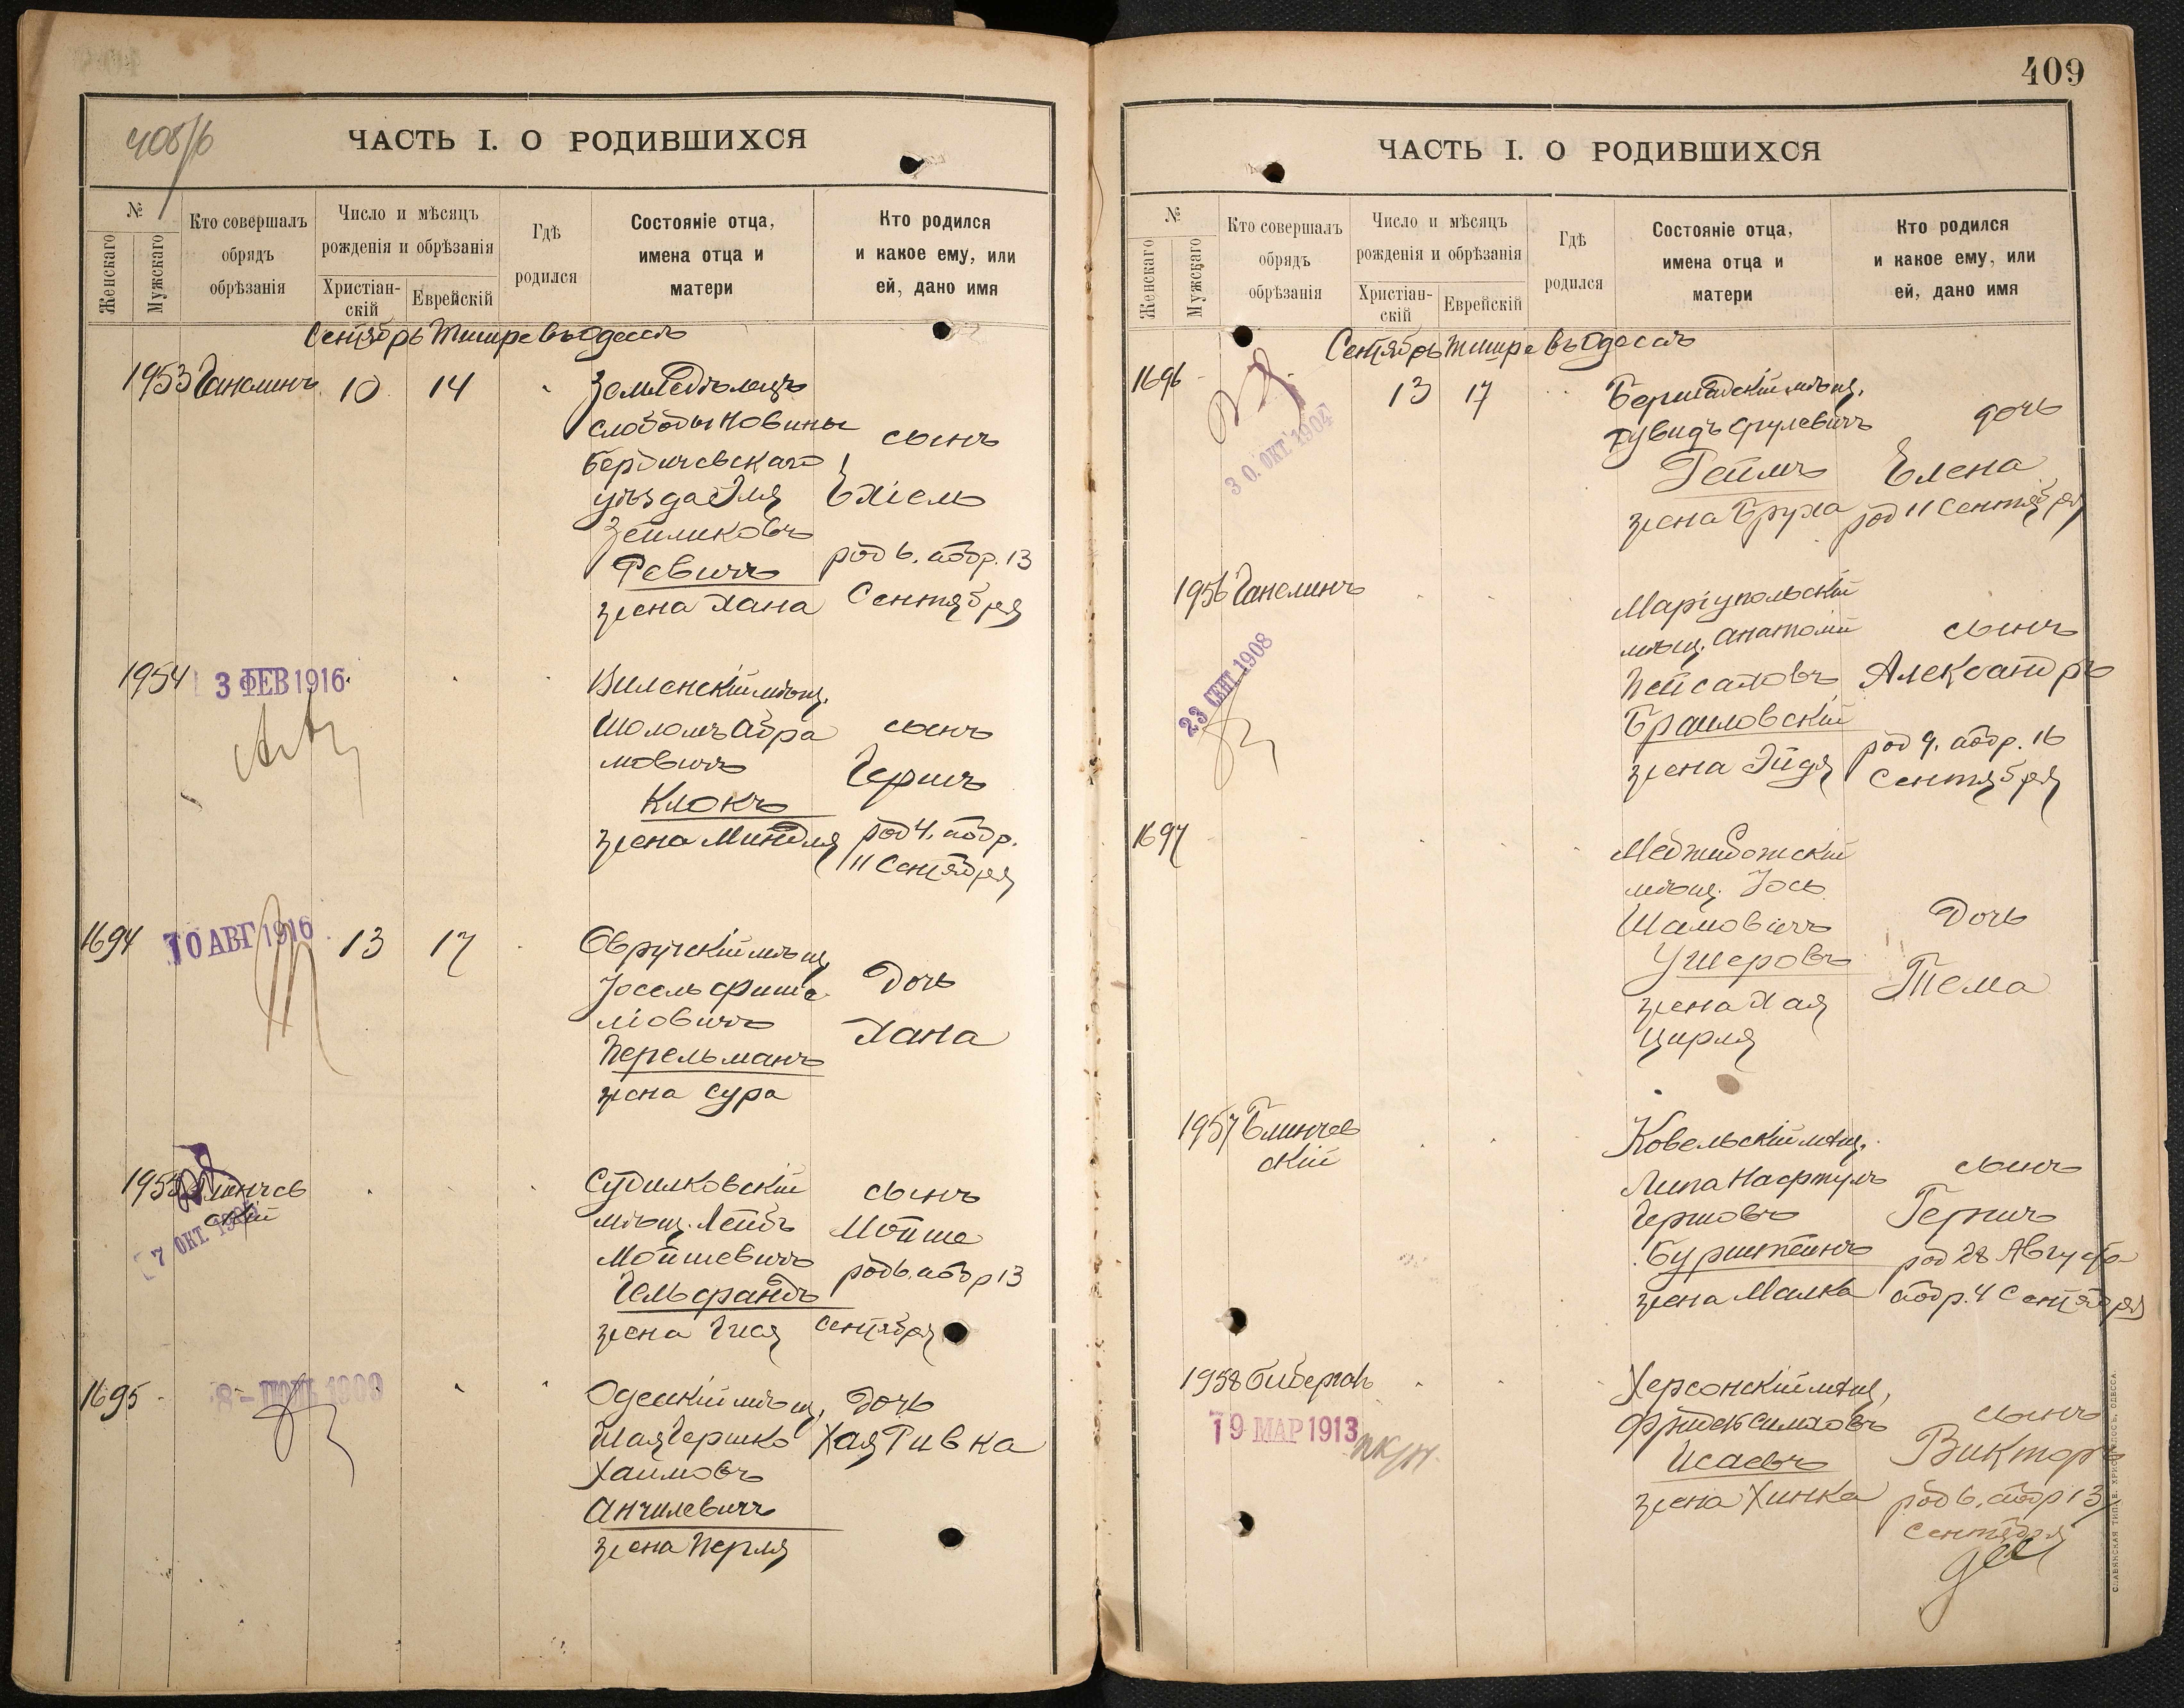 408/б
ЧАСТЬ I. О РОДИВШИХСЯ
№
Женскаго
Мужскаго
Кто совершалъ
обрядъ
обрѣзанія
Число и мѣсяцъ
рожденія и обрѣзанія
Христіан-
скій
Еврейскій
Гдѣ
родился
Состояніе отца,
имена отца и
матери
Кто родился
и какое ему, или
ей, дано имя
Сентябрь Тишре въ Одессѣ
1953 Ганелинъ 10 14
Земледѣлецъ
слободы Новины
Бердичевскаго
уѣзда Эля
Зейликовъ
Ревичъ
жена Хана
сынъ
Ехіель
род 6. аобр. 13
Сентября
1954
3 ФЕВ 1916
Виленскій мѣщ.
Шоломъ Абра
мовичъ
Клокъ
жена Миндля
сынъ
Гершъ
род 4. аобр.
11 Сентября
1694 13 17
30 АВГ 1916
Овручскій мѣщ
Іосель Фише
ліовичъ
Перельманъ
жена Сура
Дочь
Хана
1955 Блинчев
скій
7 ОКТ.
Судилковскій
мѣщ. Лейбъ
Мойшевичъ
Гельфандъ
жена Гися
сынъ
Мойше
род 6. аобр 13
Сентября
1695
Одесскій мѣщ,
Шая Гершко
Хаимовъ
Анчилевичъ
жена Перля
Дочь
Хая Ривка
409
ЧАСТЬ I. О РОДИВШИХСЯ
№
Женскаго
Мужскаго
Кто совершалъ
обрядъ
обрѣзанія
Число и мѣсяцъ
рожденія и обрѣзанія
Христіан-
скій
Еврейскій
Гдѣ
родился
Состояніе отца,
имена отца и
матери
Кто родился
и какое ему, или
ей, дано имя
Сентябрь Тишре въ Одессѣ
1696 13 17
30. ОКТ 1904
Бершадскій мѣщ.
Дувидъ Срулевичъ
Геймъ
жена Бруха
дочь
Елена
род 11 Сентября
1956 Ганелинъ
23 СЕНТ. 1908
Маріупольскій
мѣщ. Анатолій
Пейсаховъ
Браиловскій
жена Эйдя
сынъ
Александръ
род 9. аобр. 16
Сентября
1697
Меджибожскій
мѣщ. Іось
Шамовичъ
Ушеровъ
жена Хая
Цирля
Дочь
Тема
1957 Блинчев
скій
Ковельскій мѣщ.
Липа Нафтулъ
Гершовъ
Бурштейнъ
жена Малка
сынъ
Гершъ
род 28 Августа
аобр. 4 Сентября
1958
19 МАР 1913
Херсонскій мѣщ,
Фридель Симховъ
Исаевъ
жена Хинка
сынъ
Викторъ
род 6. аобр 13
Сентября